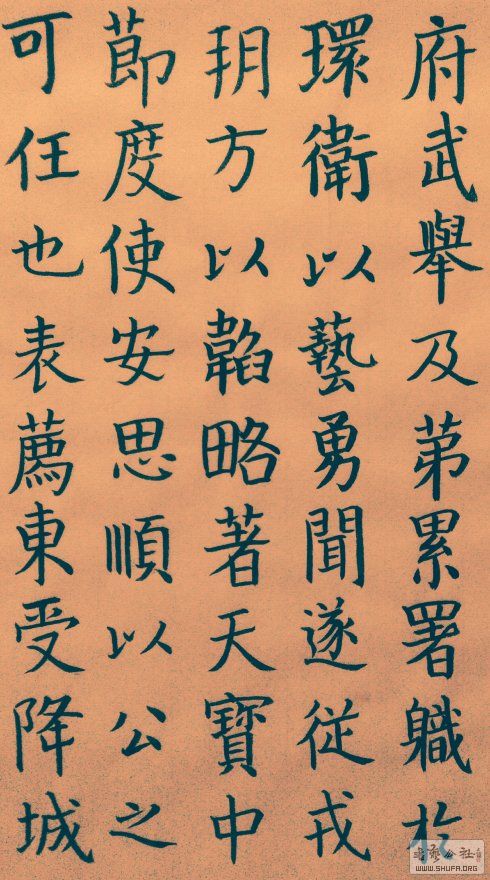 府武舉及苐累署軄於
環衛以藝勇聞遂從戎
玥方以韜略著天寶中
節度使安思順以公之
可任也表薦東受降城
WWW.SHUFA.ORG